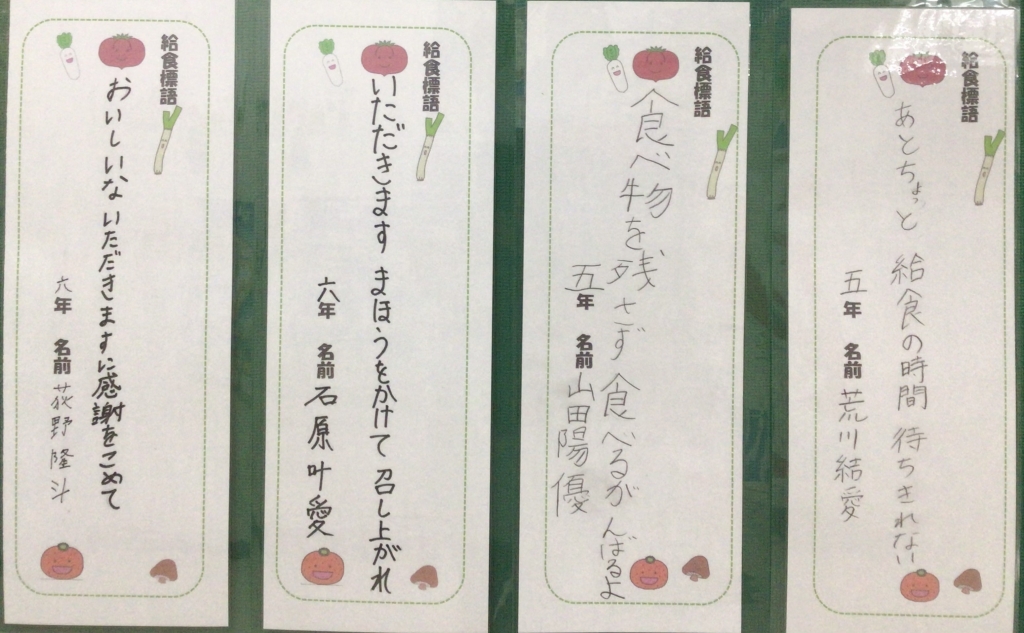 給食標語
あとちょっと 給食の時間 待ちきれない
五年 名前 荒川結愛
給食標語
食べ物を残さず 食べるがんばるよ
五年 名前 山田陽優
給食標語
いただきます まほうをかけて 召し上がれ
六年 名前 石原叶愛
給食標語
おいしいな いただきますに感謝をこめて
六年 名前 荻野隆斗